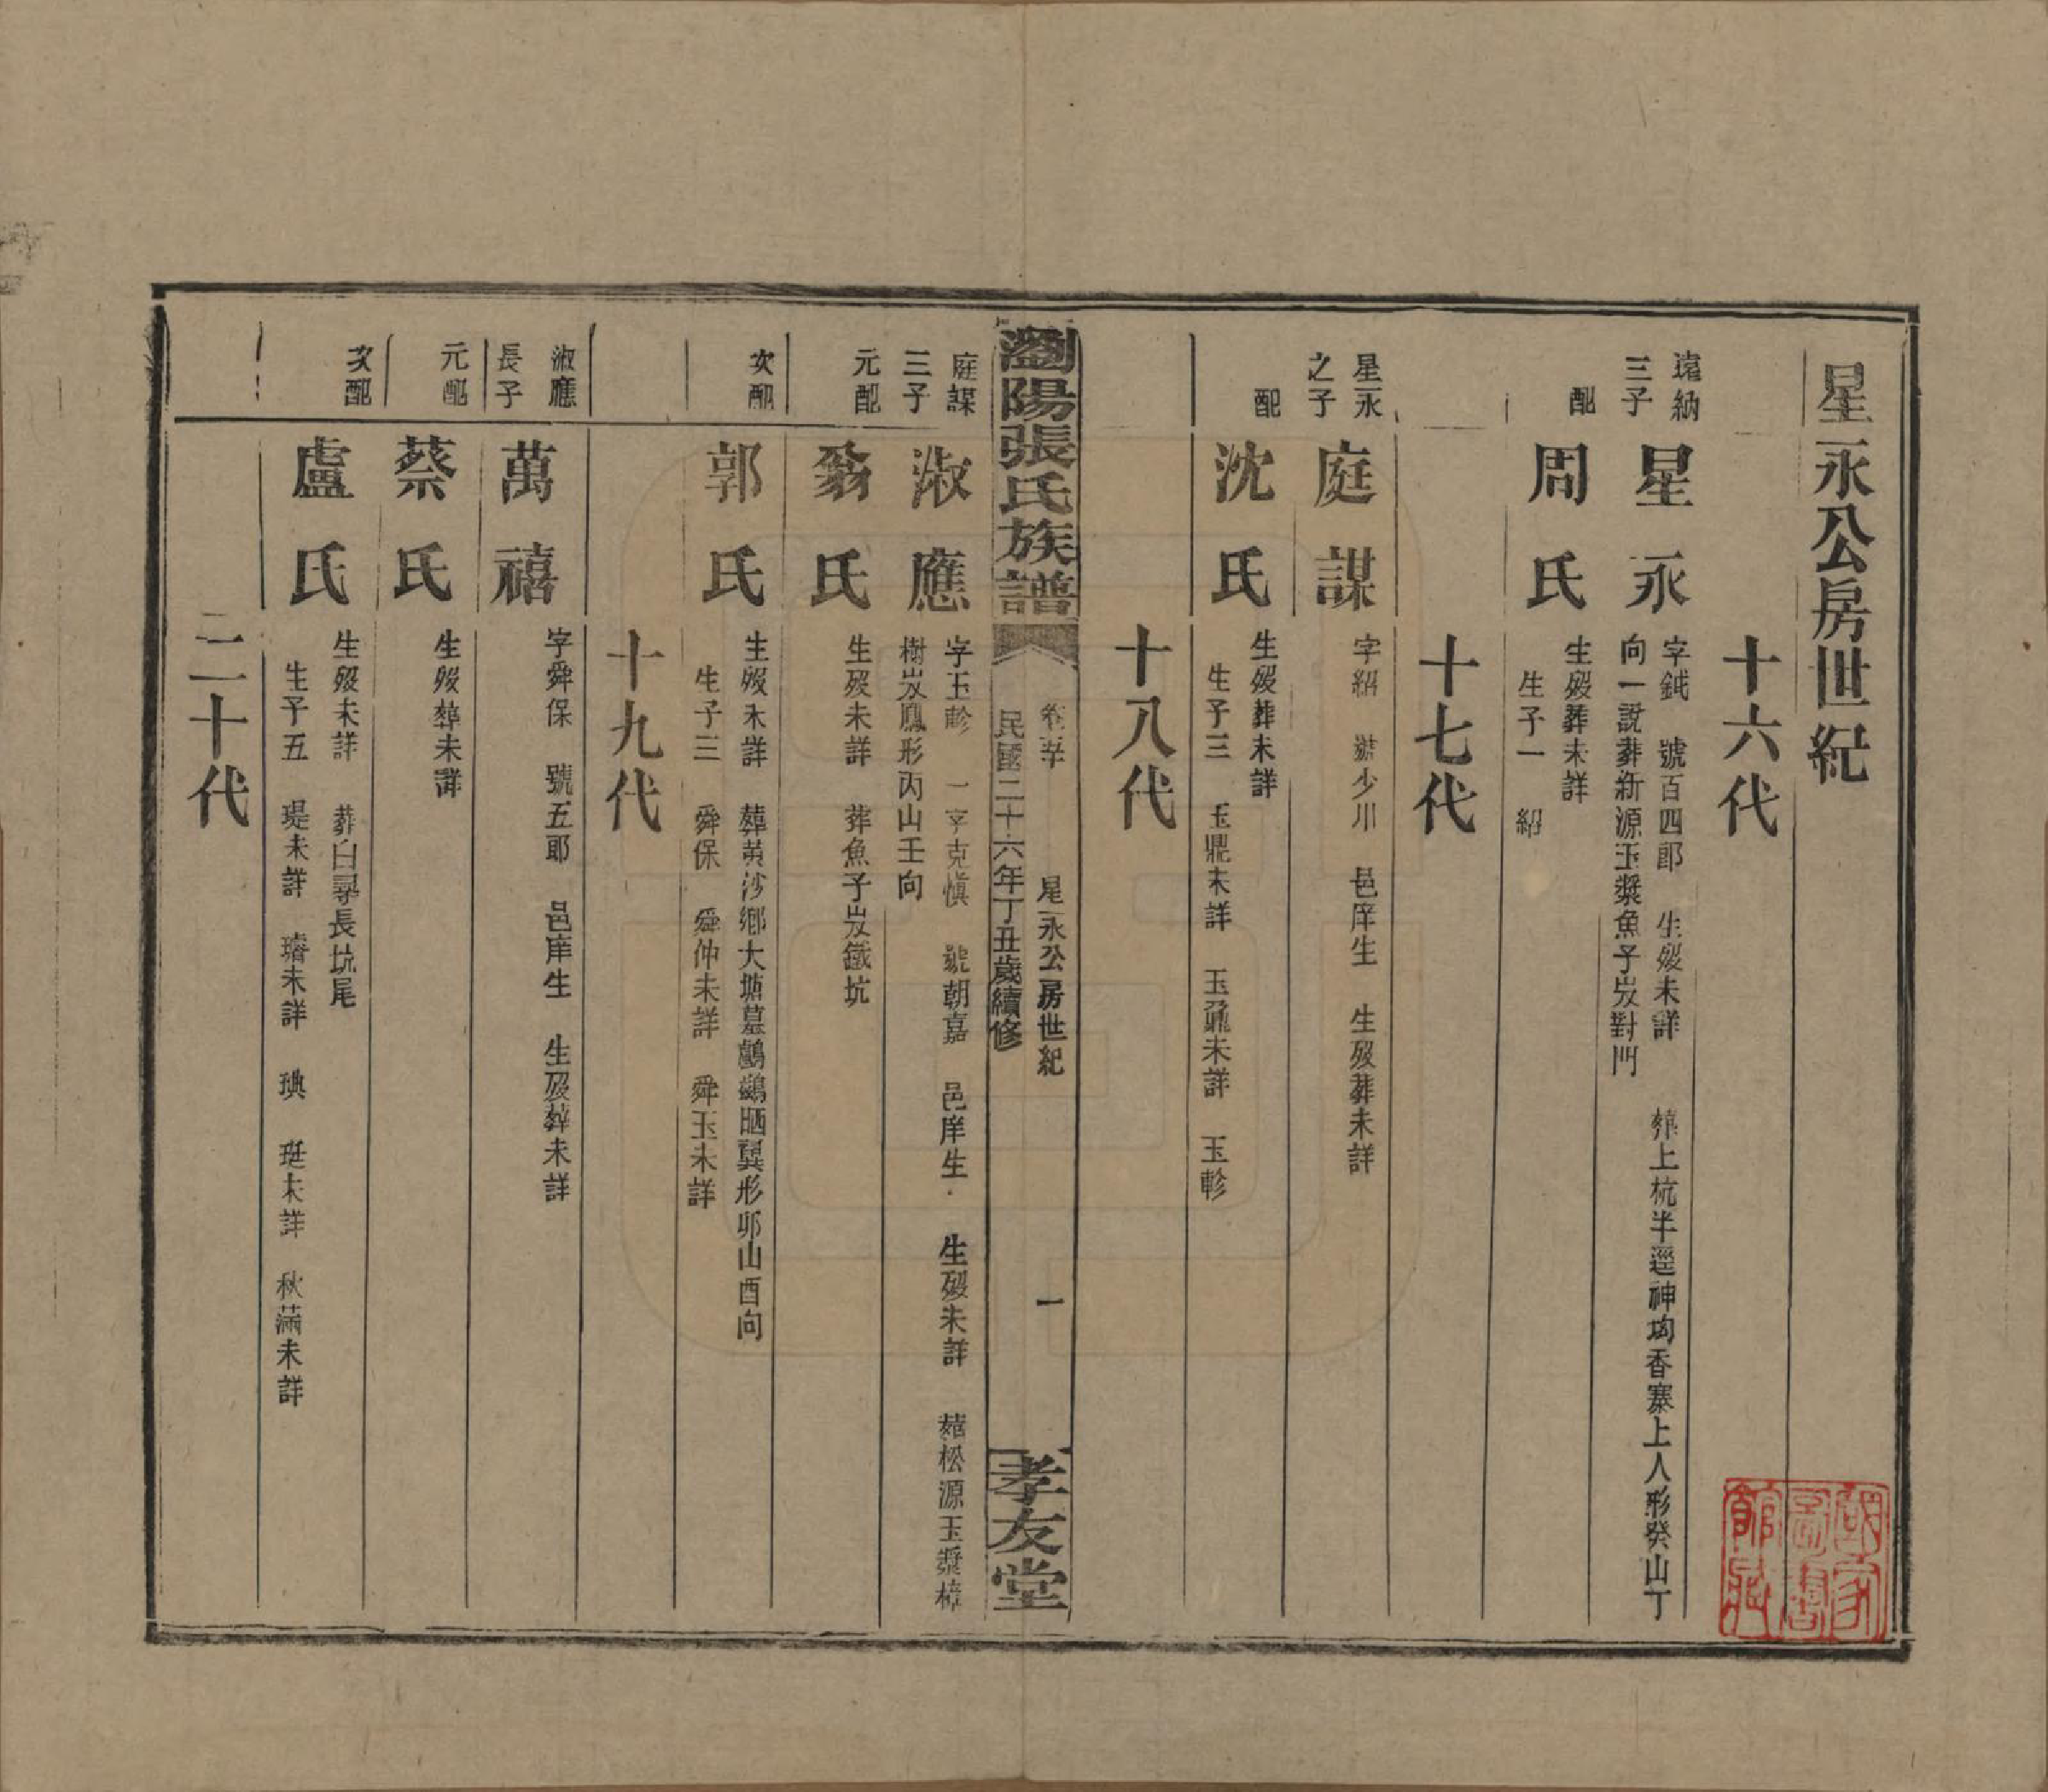 星永公房世紀
十六代
遠納
三子
星永
字鉞 號百四郎 生歿未詳 葬上杭半逕神坳香寨上人形癸山丁
向一說葬新源玉漿魚子岌對門
配
周氏
生歿葬未詳
生子一 紹
十七代
星永
之子
庭謀
字紹 號少川 邑庠生 生歿葬未詳
配
沈氏
生歿葬未詳
生子三 玉鼎未詳 玉鼐未詳 玉軫
十八代
瀏陽張氏族譜
卷 星永公房世紀 一
民國二十六年丁丑歲續修
孝友堂
庭謀
三子
淑應
字玉軫 一字克慎 號朝嘉 邑庠生 生歿未詳 葬松源玉漿樟
樹岌鳳形丙山壬向
元配
翁氏
生歿未詳 葬魚子岌鐵坑
次配
郭氏
生歿未詳 葬黃沙鄉大塘墓鷓鴣晒翼形卯山酉向
生子三 舜保 舜仲未詳 舜玉未詳
十九代
淑應
長子
萬禧
字舜保 號五郎 邑庠生 生歿葬未詳
元配
蔡氏
生歿葬未詳
次配
盧氏
生歿未詳 葬白尋長坑尾
生子五 瑅未詳 璿未詳 琠 珽未詳 秋滿未詳
二十代
國家
圖書
館藏